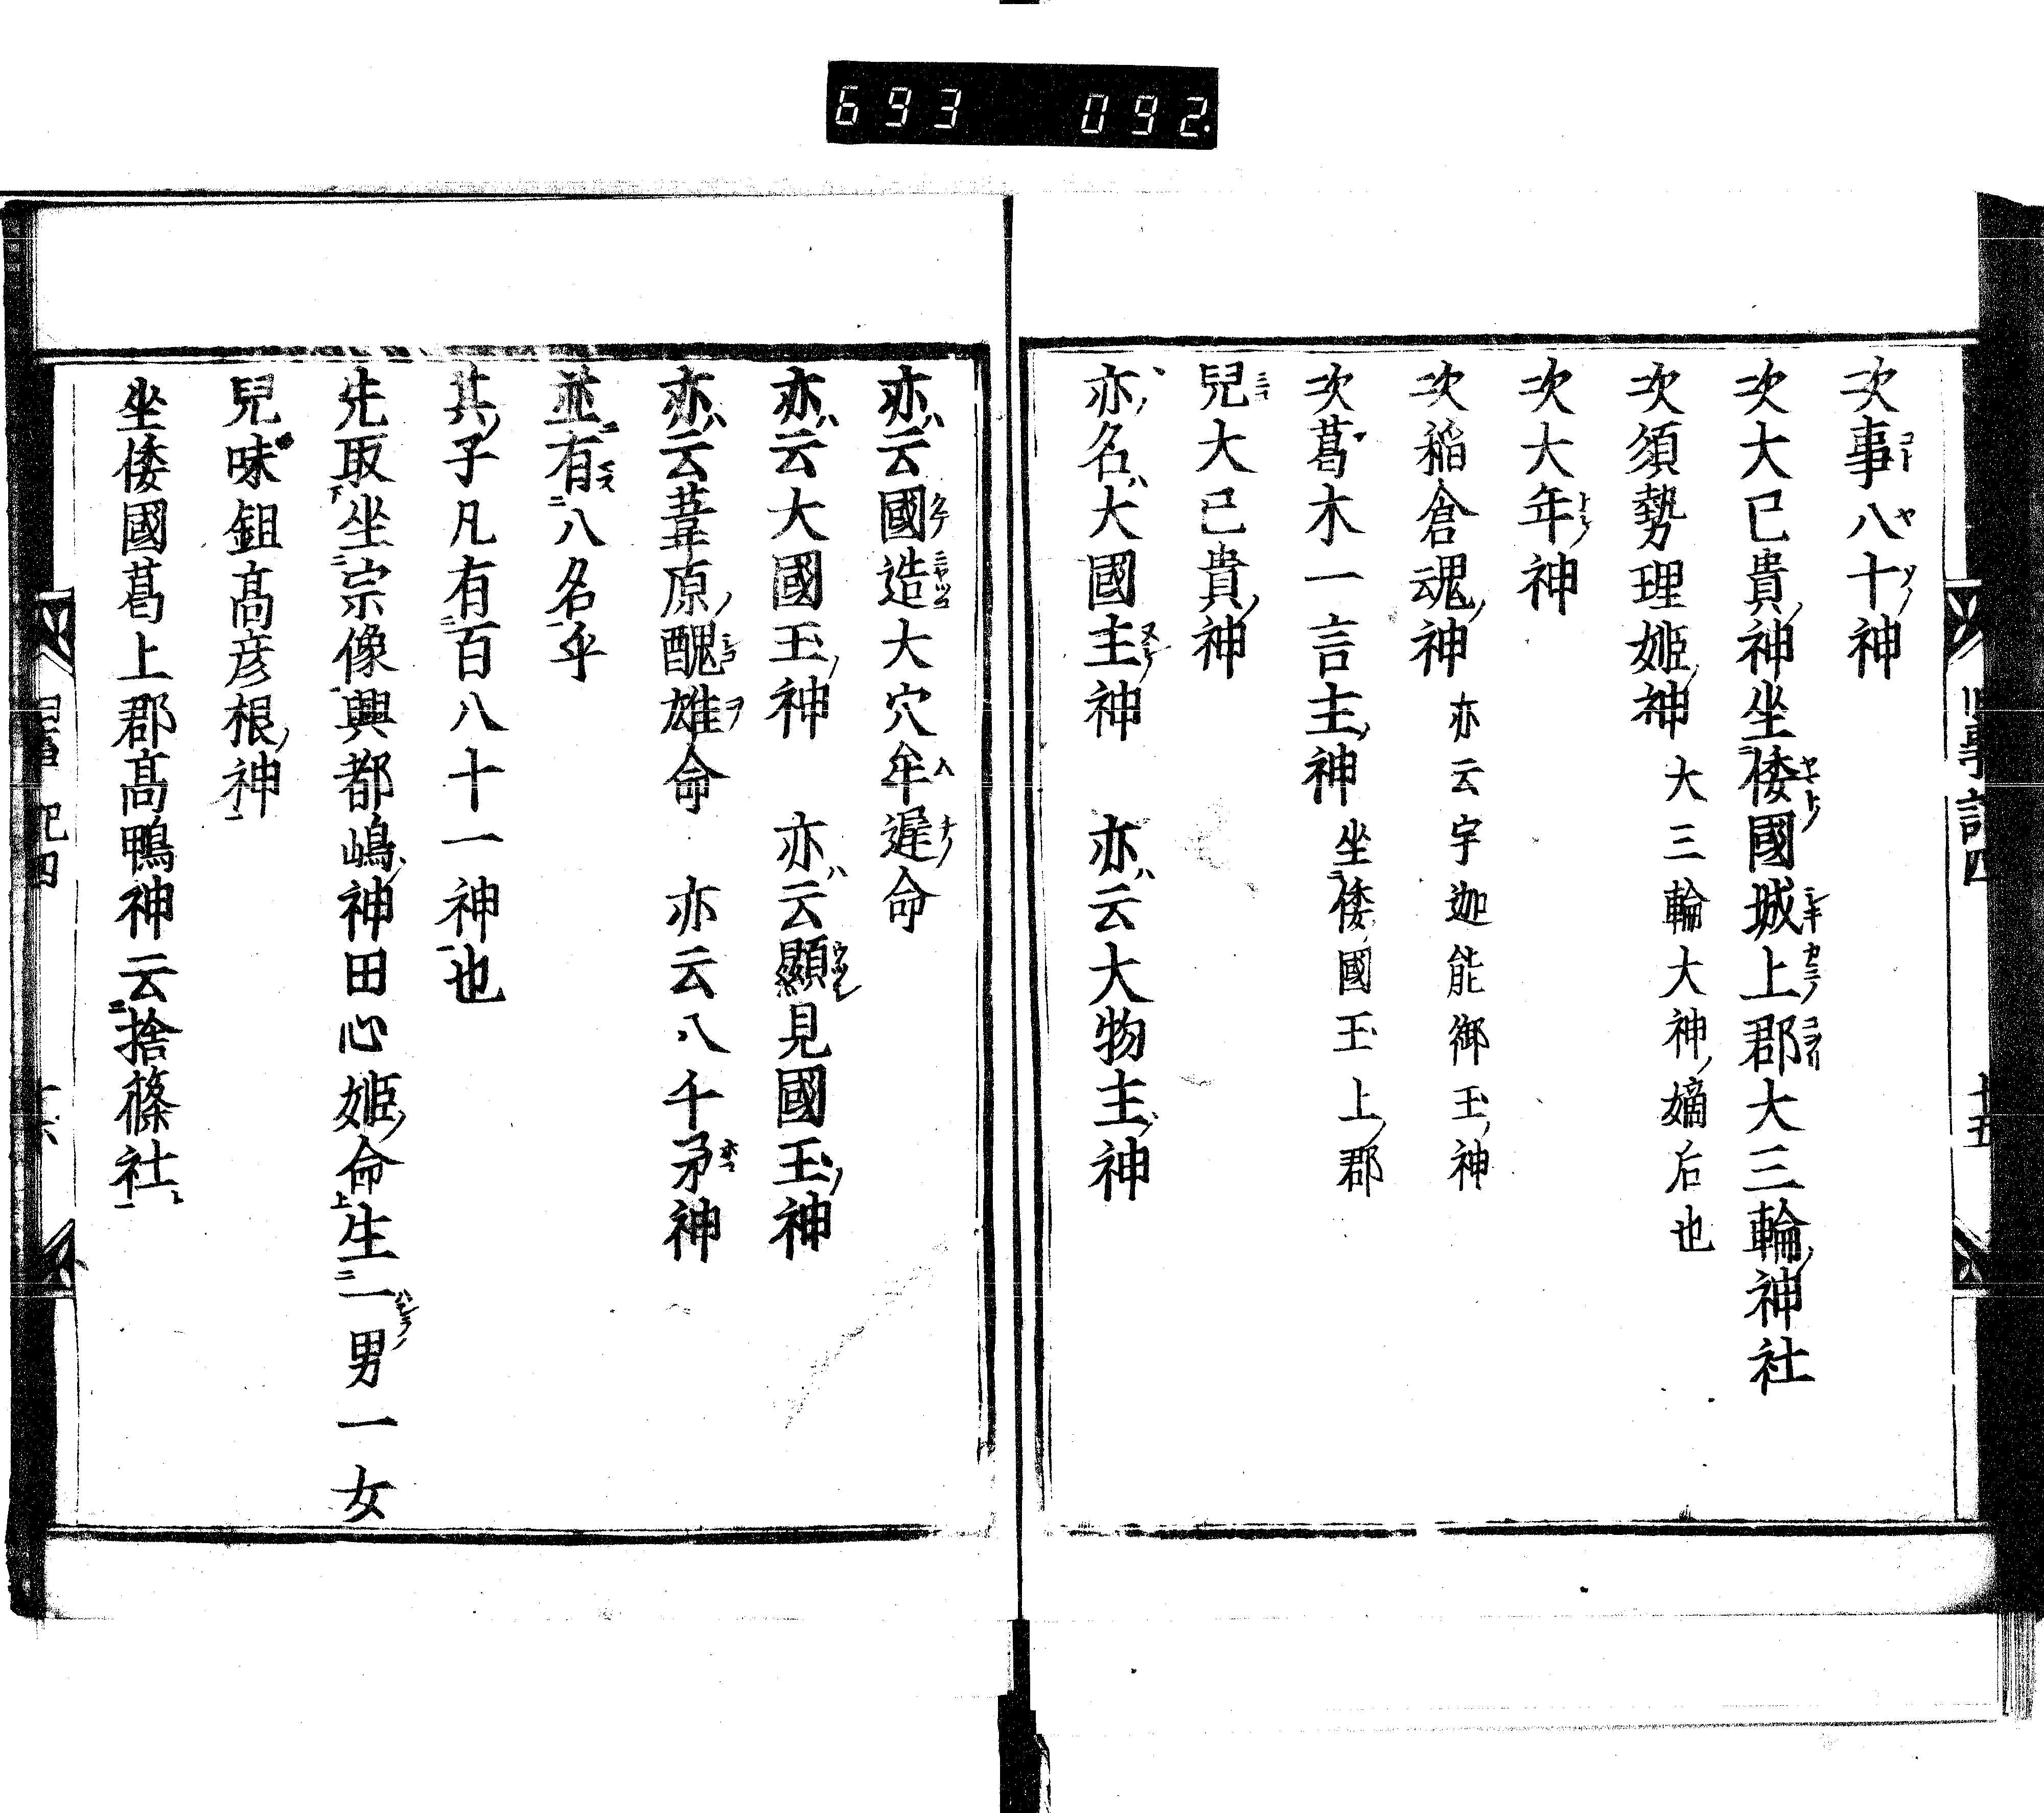 693 092.
次事八十神
次大已貴神坐倭國城上郡大三輪神社
次須勢理姬神 大三輪大神嫡后也
次大年神
次稻倉魂神 亦云宇迦能御玉神
次葛木一言主神 坐倭國玉上郡
兒大已貴神
亦名大國主神 亦云大物主神
亦云國造大穴牟遲命
亦云大國玉神 亦云顯見國玉神
亦云葦原醜雄命 亦云八千矛神
並有八名乎
其子凡有百八十一神也
先取坐宗像興都嶋神田心姬命生一男一女
兒味鉏高彦根神
坐倭國葛上郡高鴨神云捨篠社